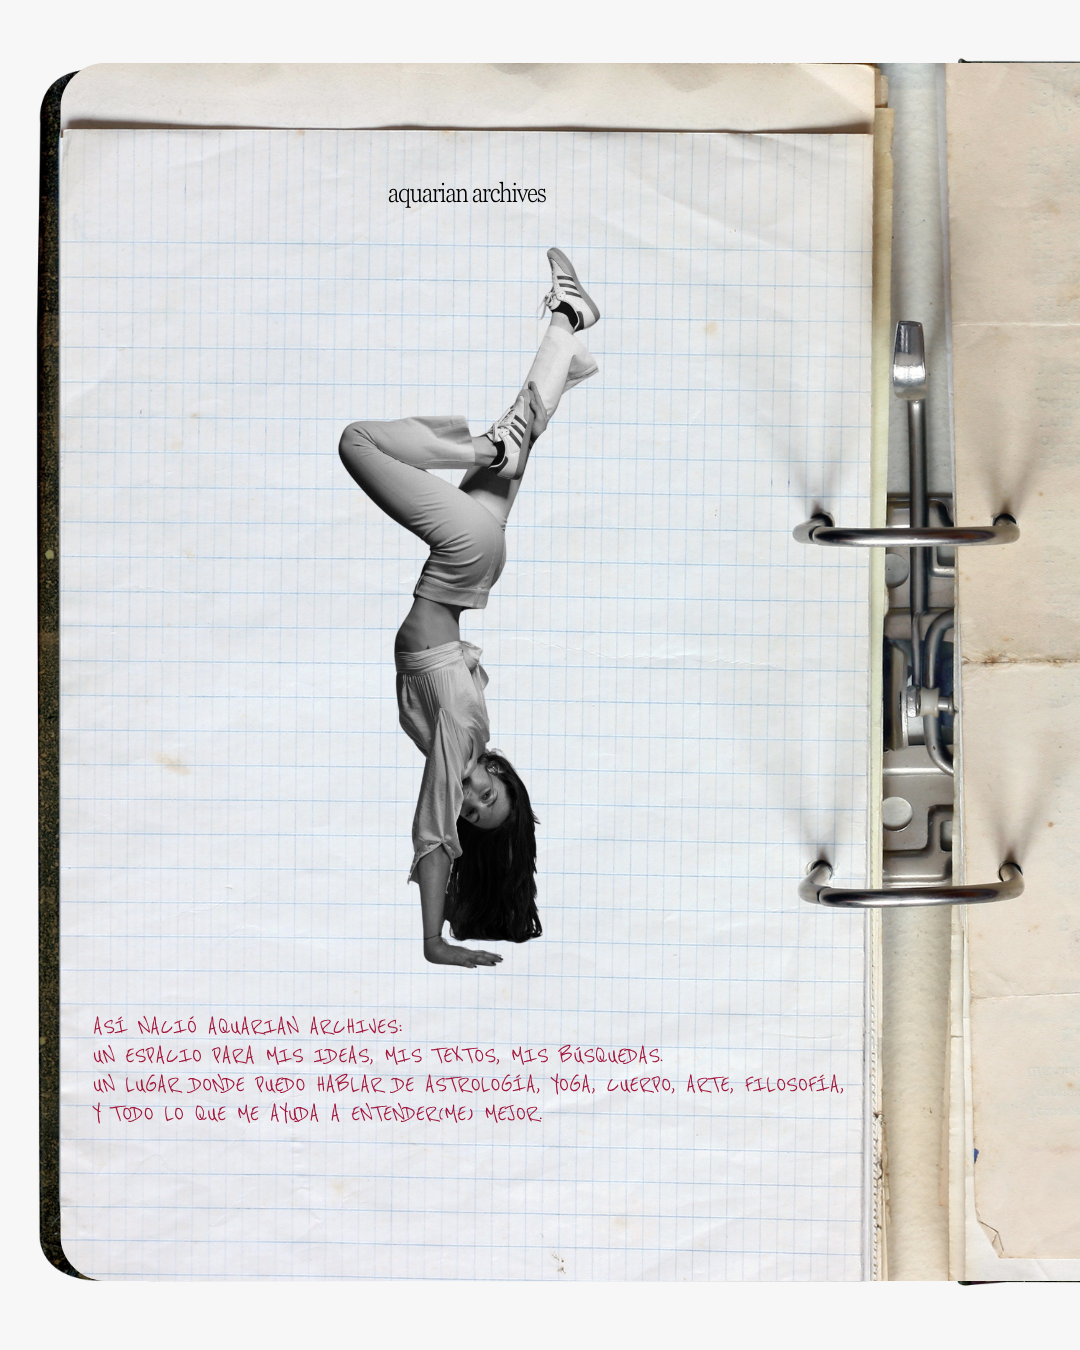 aquarian archives
ASÍ NACIÓ AQUARIAN ARCHIVES:
UN ESPACIO PARA MIS IDEAS, MIS TEXTOS, MIS BÚSQUEDAS.
UN LUGAR DONDE PUEDO HABLAR DE ASTROLOGÍA, YOGA, CUERPO, ARTE, FILOSOFÍA,
Y TODO LO QUE ME AYUDA A ENTENDER(ME) MEJOR.